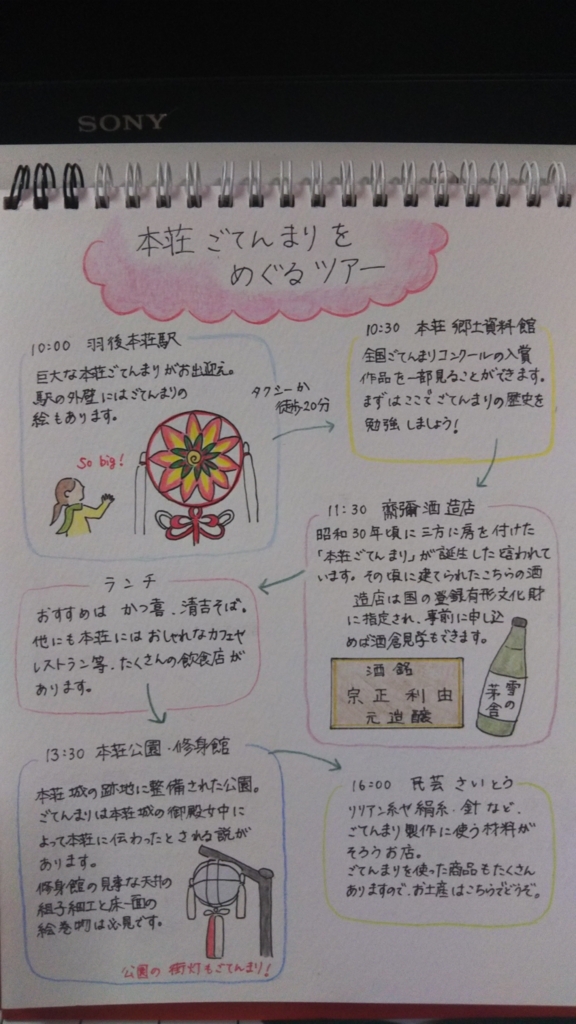 SONY
本荘ごてんまりを
めぐるツアー
10:00 羽後本荘駅
巨大な本荘ごてんまりがお出迎え。
駅の外壁にはごてんまりの
絵もあります。
So big!
タクシーか
徒歩20分
10:30 本荘郷土資料館
全国ごてんまりコンクールの入賞
作品を一部見ることができます。
まずはここでごてんまりの歴史を
勉強しましょう!
11:30 齋彌酒造店
昭和30年頃に三方に房を付けた
「本荘ごてんまり」が誕生した言われて
います。その頃に建てられたこちらの酒
造店は国の登録有形文化財
に指定され、事前に申し込
めば酒倉見学もできます。
酒銘
宗正利由
元造醸
雪の茅舎
ランチ
おすすめは かつ喜、清吉そば。
他にも本荘にはおしゃれなカフェや
レストラン等、たくさんの飲食店が
あります。
13:30 本荘公園・修身館
本荘城の跡地に整備された公園。
ごてんまりは本荘城の御殿女中に
よって本荘に伝わったとされる説が
あります。
修身館の見事な天井の
組子細工と床一面の
絵巻物は必見です。
公園の街灯もごてんまり!
16:00 民芸 さいとう
リリアン糸や絹糸・針など、
ごてんまり製作に使う材料が
そろうお店。
ごてんまりを使った商品もたくさん
ありますので、お土産はこちらでどうぞ。